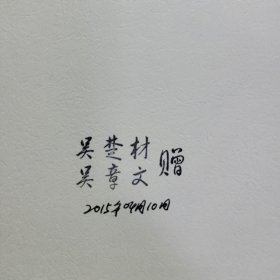 吴楚材
吴章文 赠
2015年04月10日